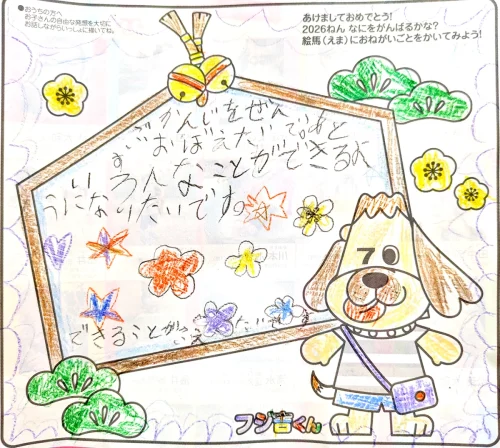 ●おうちの方へ
お子さんの自由な発想を大切に
お話しながらいっしょに描いてね。
あけましておめでとう!
2026ねん なにをがんばるかな?
絵馬(えま)におねがいごとをかいてみよう!
かんじをぜん
ぶおぼえたいです。あと
いろんなことができるよ
うになりたいです。
70
できることが
フジ吉くん